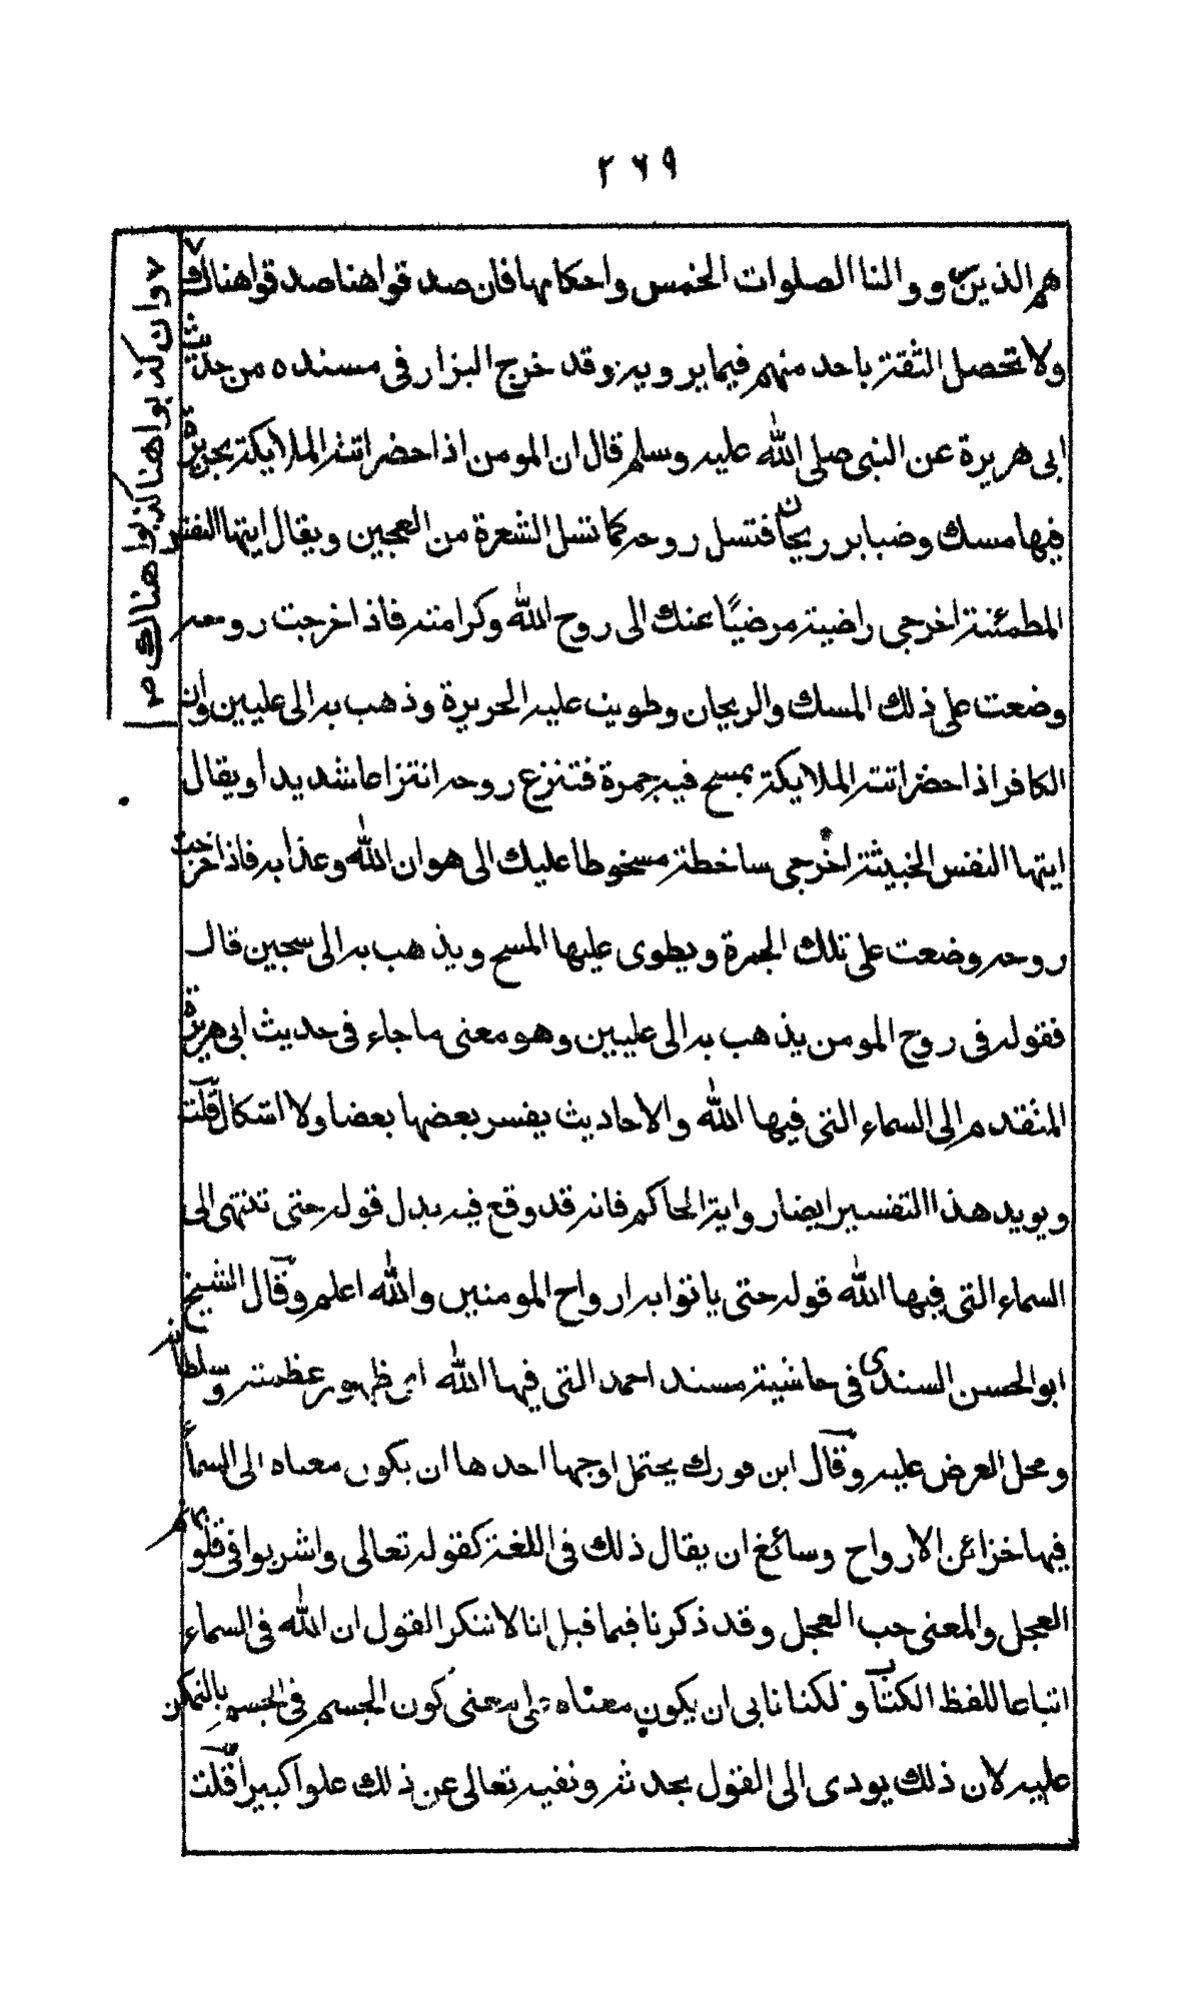 ٢٦٩
هم الذين رووا لنا الصلوات الخمس واحكامها فان صدقوا هنا صدقوا هناك
ولا تحصل الثقة باحد منهم فيما يرويه وقد خرج البزار فى مسنده من حديث
ابى هريرة عن النبى صلى الله عليه وسلم قال ان المومن اذا احضر اتته الملايكة بحريرة
فيها مسك وضباير ريحان فتسل روحه كما تسل الشعرة من العجين ويقال ايتها النفس
المطمئنة اخرجى راضية مرضيًا عنك الى روح الله وكرامته فاذا خرجت روحه
وضعت على ذلك المسك والريحان وطويت عليه الحريرة وذهب به الى عليين وان
الكافر اذا احضر اتته الملايكة بمسح فيه جمرة فتنزع روحه انتزاعا شديدا ويقال
ايتها النفس الخبيثة اخرجى ساخطة مسخوطا عليك الى هوان الله وعذابه فاذا خرجت
روحه وضعت على تلك الجمرة ويطوى عليها المسح ويذهب به الى سجين قال
فقوله فى روح المومن يذهب به الى عليين وهو معنى ما جاء فى حديث ابى هريرة
المتقدم الى السماء التى فيها الله والاحاديث يفسر بعضها بعضا ولا اشكال قلت
ويويد هذا التفسير ايضا رواية الحاكم فانه قد وقع فيه بدل قوله حتى تنتهى الى
السماء التى فيها الله قوله حتى ياتوا به ارواح المومنين والله اعلم وقال الشيخ
ابو الحسن السندى فى حاشية مسند احمد التى فيها الله اى ظهور عظمته وسلطانه
ومحل العرض عليه وقال ابن فورك يحتمل اوجها احدها ان يكون معناه الى السماء
فيها خزائن الارواح وسائغ ان يقال ذلك فى اللغة كقوله تعالى واشربوا فى قلوبهم
العجل والمعنى حب العجل وقد ذكرنا فيما قبل انا لا ننكر القول ان الله فى السماء
اتباعا للفظ الكتاب ولكنا نابى ان يكون معناه على معنى كون الجسم فى الجسم بالتمكن
عليه لان ذلك يودى الى القول بحدثه ونفيه تعالى عن ذلك علوا كبيرا قلت
وان كذبوا هنا كذبوا هناك صح